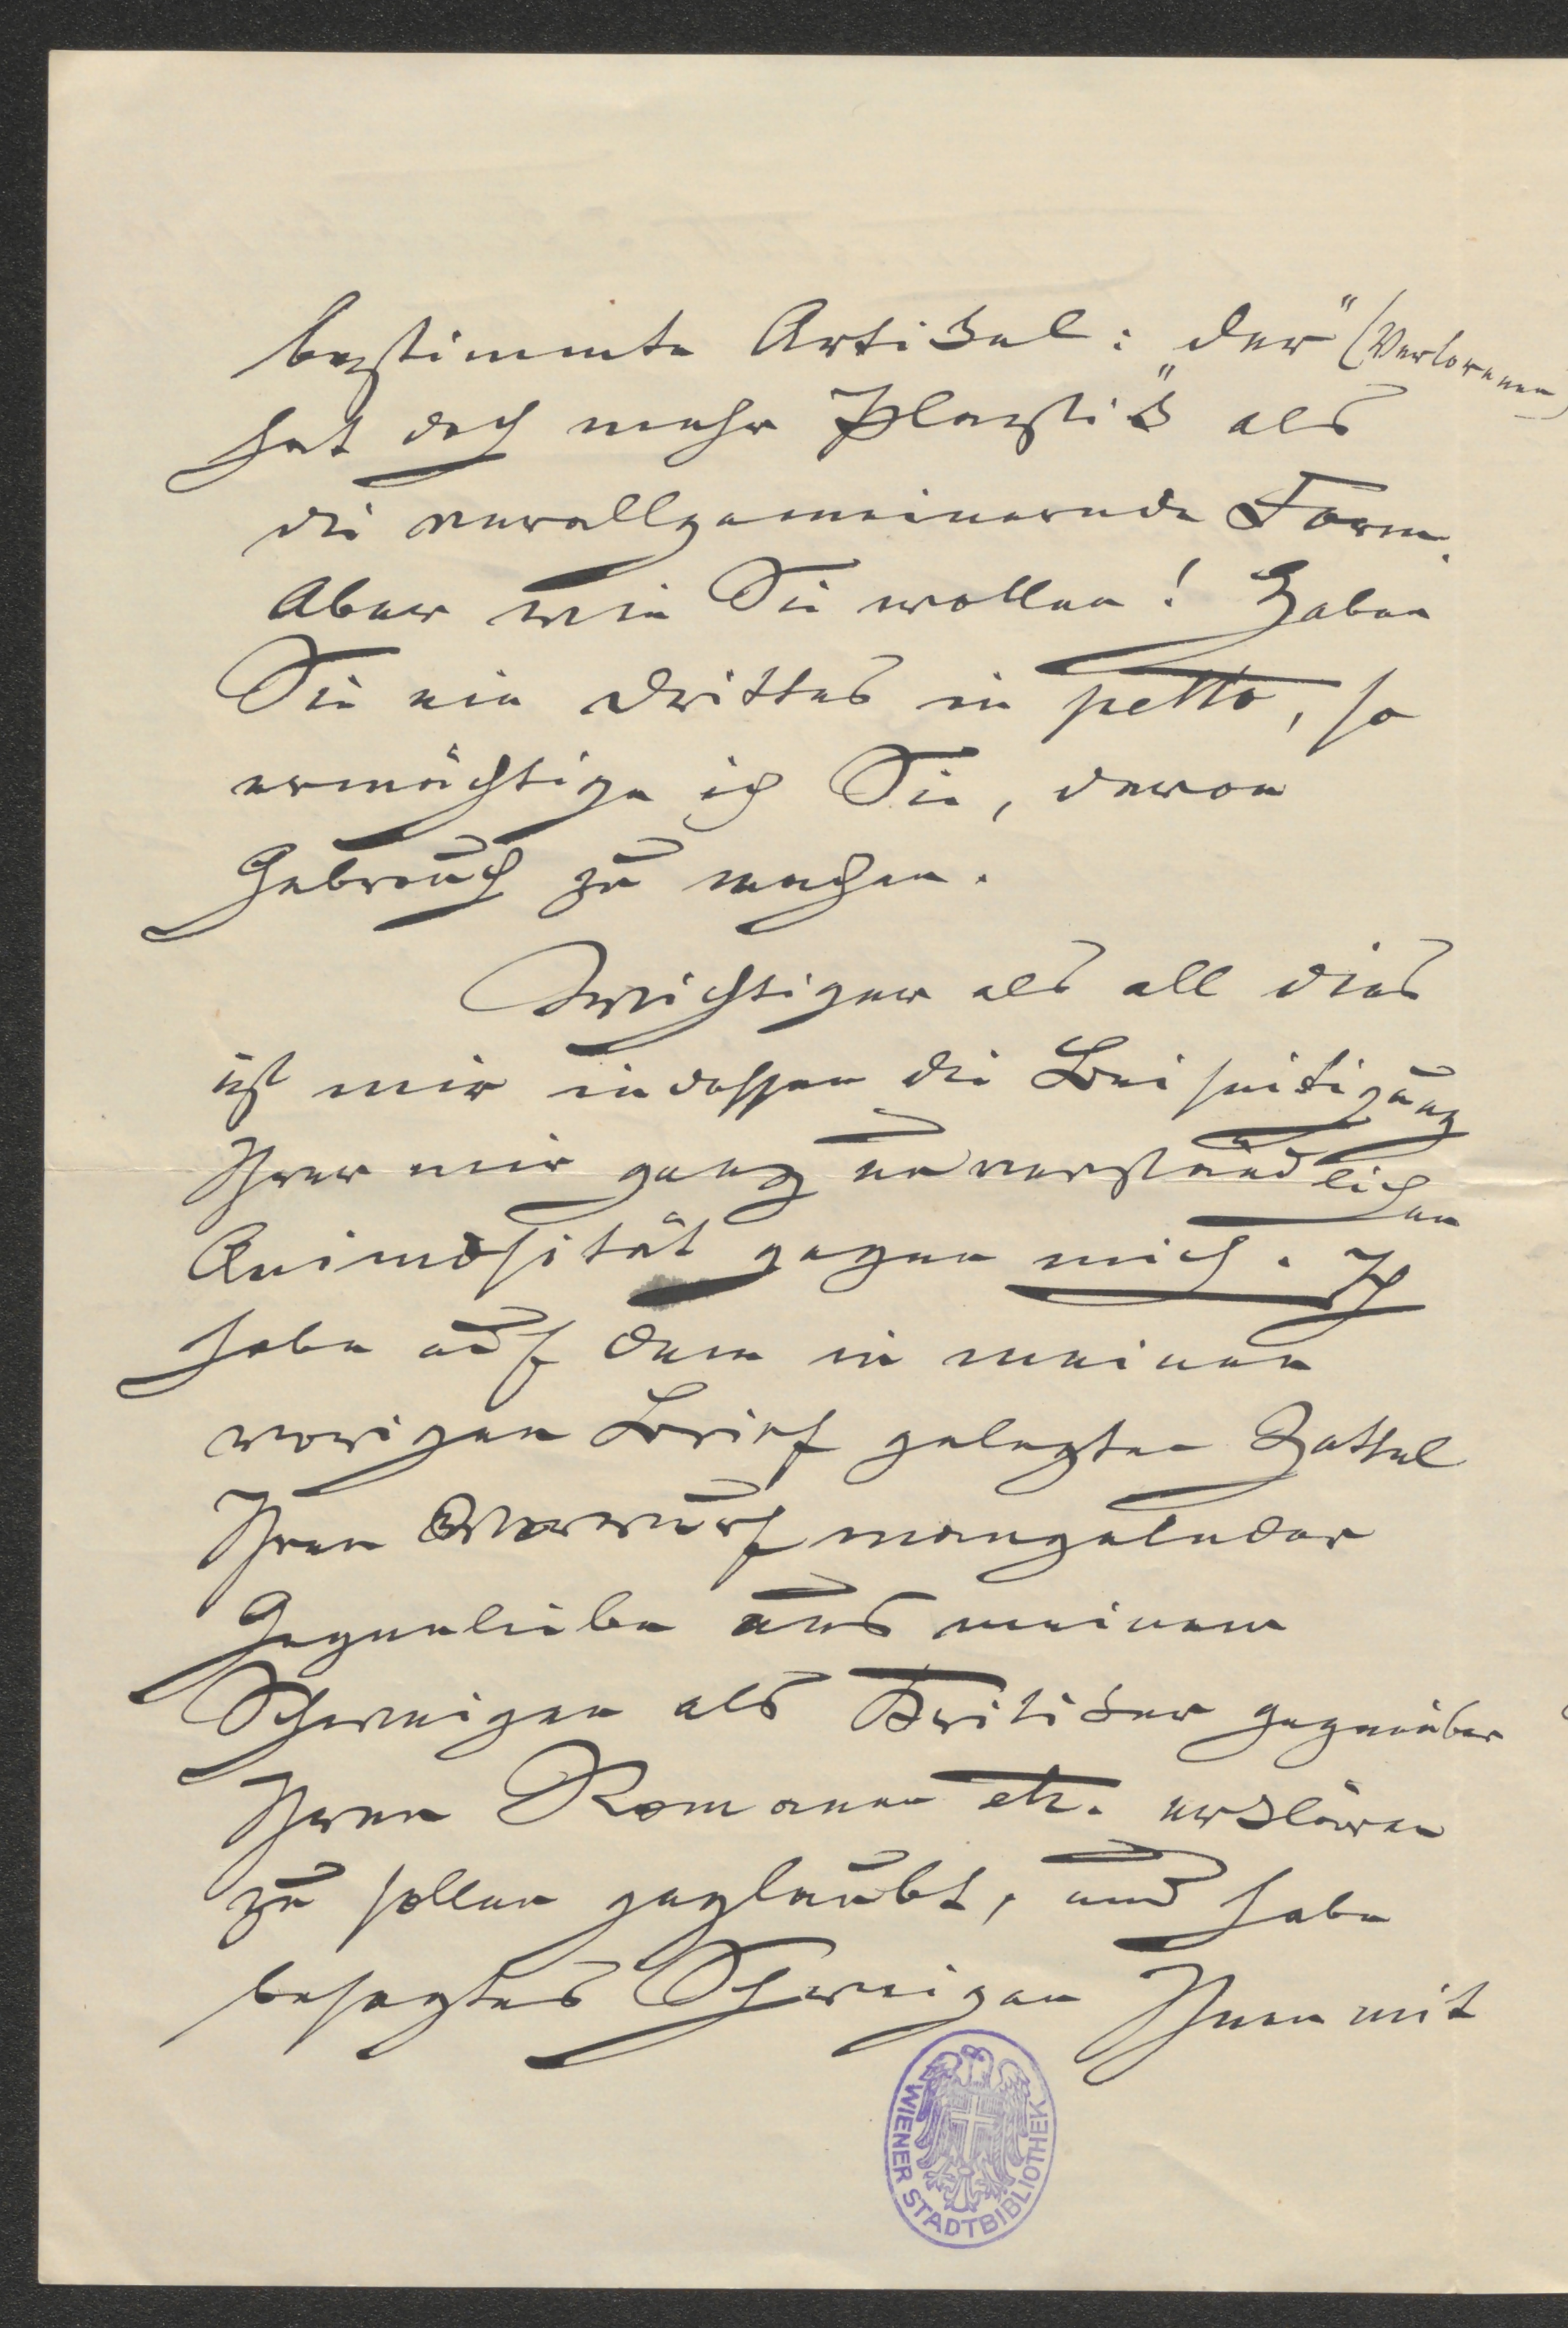 bestimmte Artikel: der" (Verlorenen)
hat doch mehr „Plastik" als
die verallgemeinernde Form.
Aber wie Sie wollen! Haben
Sie ein Drittes in petto, so
ermächtige ich Sie, davon
Gebrauch zu machen.
Wichtiger als all dies
ist mir indessen die Beiseitigung
Ihrer mir ganz unverständlichen
Animosität gegen mich. Ich
habe auf dem in meinen
vorigen Brief gelegten Zettel
Ihren Vorwurf mangelnder
Gegenliebe aus meinem
Schweigen als Kritiker gegenüber
Ihren Romanen etc. erklären
zu sollen geglaubt, und habe
besagtes Schweigen Ihnen mit
WIENER STADTBIBLIOTHEK